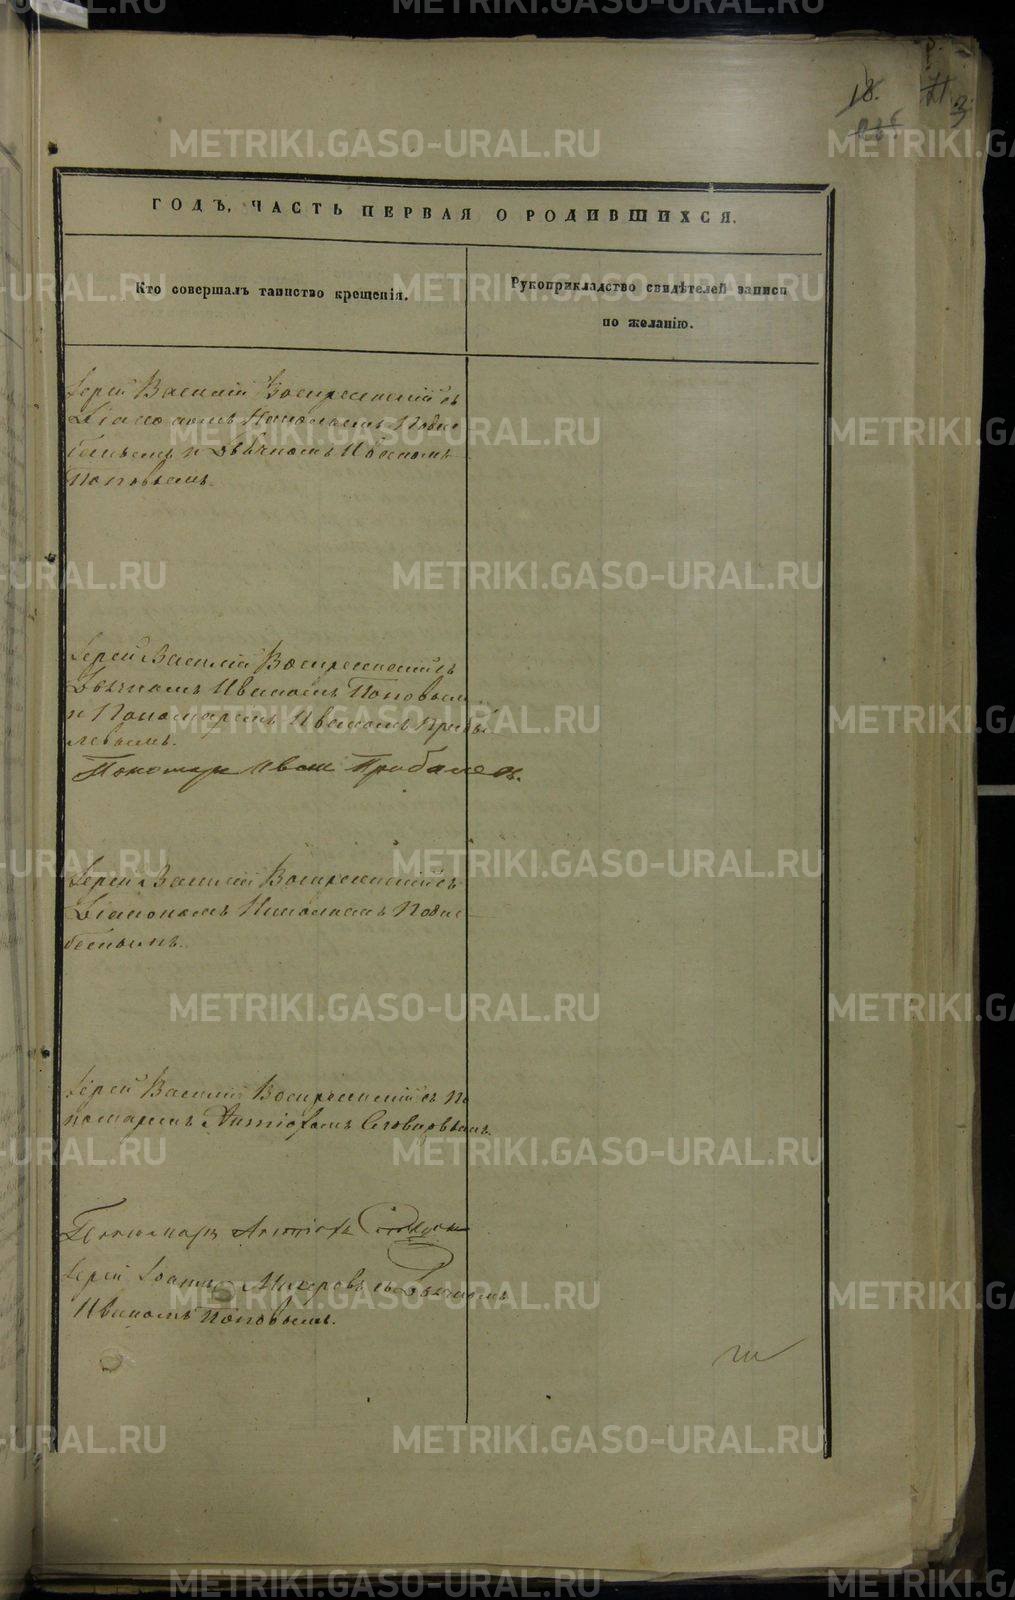 18.
3
ГОДЪ, ЧАСТЬ ПЕРВАЯ О РОДИВШИХСЯ.
Кто совершалъ таинство крещенія.
Рукоприкладство свидѣтелей записи
по желанію.
Іерей Василій Воскресенскій съ
Діакономъ Николаемъ
и Дьячкомъ Иваномъ
Поповымъ.
Іерей Василій Воскресенскій съ
Дьячкомъ Иваномъ Поповымъ
и Пономаремъ Иваномъ Прибы
левымъ.
Пономарь Иван
Іерей Василій Воскресенскій съ
Діакономъ Николаемъ
Іерей Василій Воскресенскій съ По
номаремъ Антіохомъ
Пономарь Антіохъ
Іерей Іоаннъ съ Дьячкомъ
Иваномъ Поповымъ.
METRIKI.GASO-URAL.RU